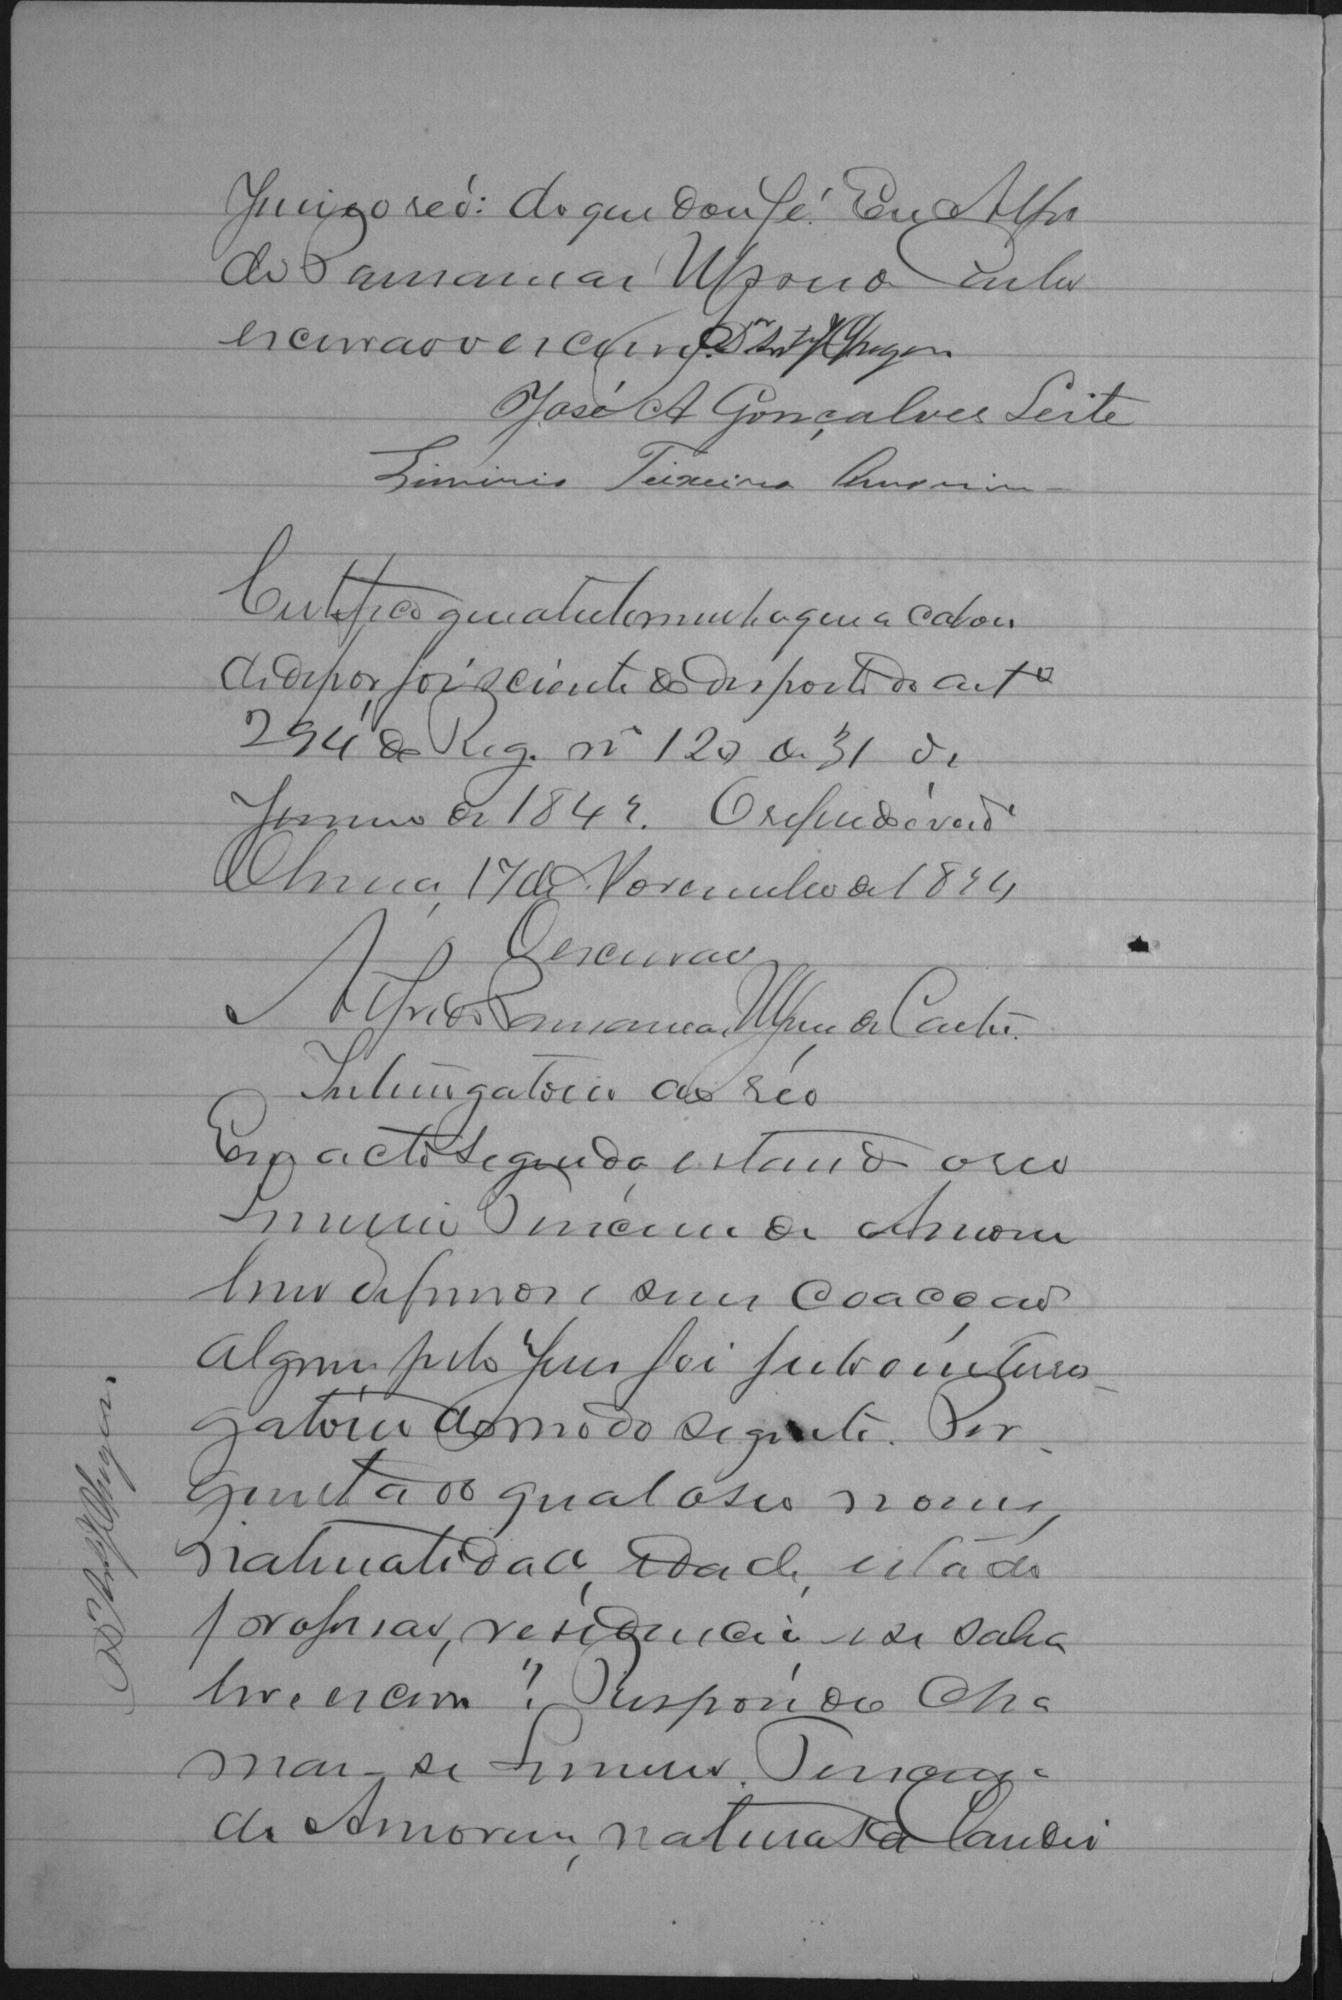 Juiz e o reó: do que dou fé. Eu Alfre
do
escrivão o escrevi.
José A Gonçalves Leite
Liminio Teixeira Amorim
Certifico que a testemunha que acabou
de depor, foi sciente do disposto do arto
294 do Reg. nº 120 de 31 de
Janeiro de 1842. O referido é verdᵉ
17 de Novembro de 1894
O escrivão
Alfredo de Castro.
Interrogatorio ao réo
Em acto segundo, estando o reo
Liminio Teixeira de Amorim
livre de ferros e sem coacção
alguma pelo Juiz foi feito o interro-
gatório do modo seguinte. Per-
guntado qual o seu nome,
naturalidade, idade, estado
profissão, residencia e se sabia
ler e escrever? Respondeo cha
mar-se Liminio Teixeira
de Amorim, natural da